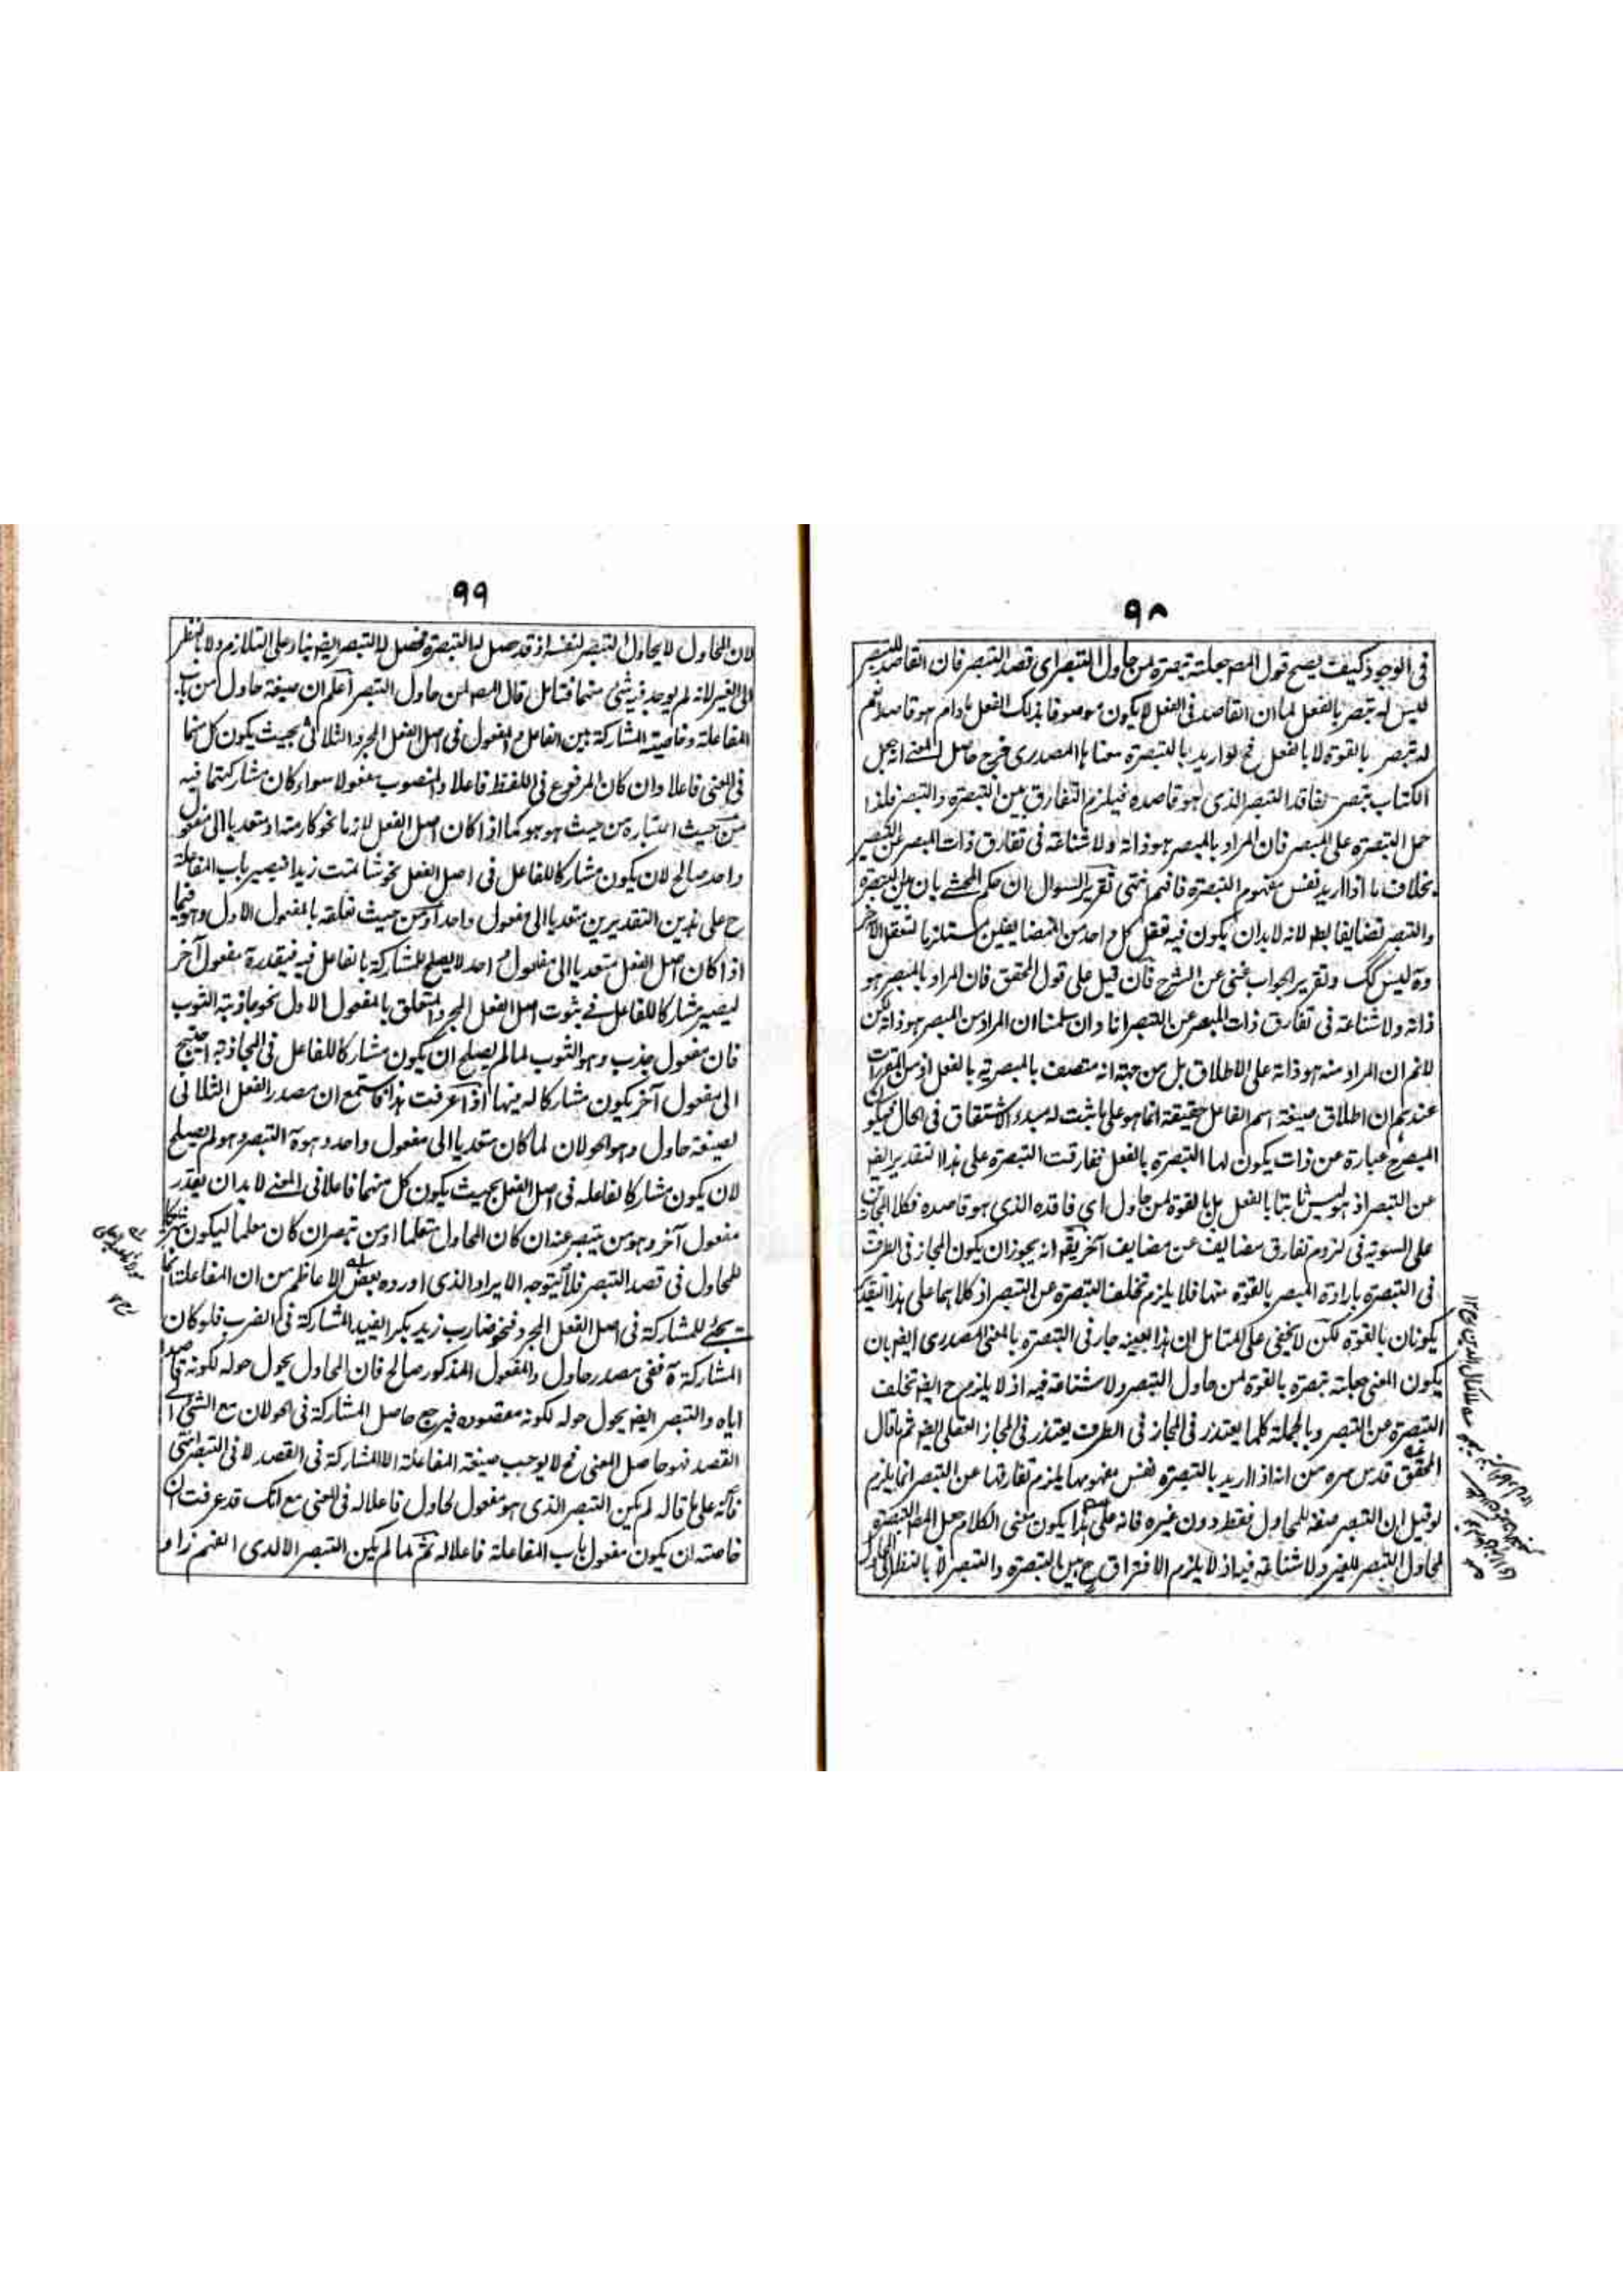 ٩٨
فى الوجود كيف يصح قول المصـ جعلته تبصرة لمن حاول التبصر اى قصد التبصر فان القاصد للتبصر
ليس له تبصر بالفعل لما ان القاصد فى الفعل لا يكون موصوفا بذلك الفعل مادام هو قاصدا نعم
له تبصر بالقوة لا بالفعل فح لو اريد بالتبصرة معناها المصدرى فرجع حاصل المعنى انه جعل
الكتاب تبصر لفاقد التبصر الذى هو قاصده فيلزم التفارق بين التبصرة والتبصر فلذا
حمل التبصرة على المبصر فان المراد بالمبصر هو ذاته ولا شناعة فى تفارق ذات المبصر عن التبصر
بخلاف ما اذا اريد نفس مفهوم التبصرة فافهم انتهى تقرير السوال ان حكم المحشى بان بين التبصرة
والتبصر تضايفا بط لانه لا بد ان يكون فيه تعقل كل واحد من المتضايفين مستلزما لتعقل الآخر
وهـ ليس كك وتقرير الجواب غنى عن الشرح فان قيل على قول المحقق فان المراد بالمبصر هو
ذاته ولا شناعة فى تفارق ذات المبصر عن التبصر انا وان سلمنا ان المراد من المبصر هو ذاته لكن
لانم ان المراد منه هو ذاته على الاطلاق بل من جهة انه متصف بالمبصرية بالفعل اذ من المقررات
عندهم ان اطلاق صيغة اسم الفاعل حقيقة انما هو على ما ثبت له مبدء الاشتقاق فى الحال فيكون
المبصر ح عبارة عن ذات يكون لها التبصرة بالفعل ففارقت التبصرة على هذا التقدير ايضـ
عن التبصر اذ هو ليس ثابتا بالفعل بل بالقوة لمن حاول اى فاقده الذى هو قاصده فكلا المجازين
على السوية فى لزوم تفارق مضايف عن مضايف آخر يقـ انه يجوز ان يكون المجاز فى الطرف
فى التبصرة بارادة المبصر بالقوة منها فلا يلزم تخلف التبصرة عن التبصر اذ كلاهما على هذا التقدير
يكونان بالقوة لكن لا يخفى على المتامل ان هذا بعينه جار فى التبصرة بالمعنى المصدرى ايضـ بان
يكون المعنى جعلته تبصرة بالقوة لمن حاول التبصر ولا شناعة فيه اذ لا يلزم ح ايضـ تخلف
التبصرة عن التبصر وبالجملة كلما يعتذر فى المجاز فى الطرف يعتذر فى المجاز العقلى ايضـ ثم ما قال
المحقق قدس سره من انه اذا اريد بالتبصرة نفس مفهومها يلزم تفارقها عن التبصر انما يلزم
لو قيل ان التبصر صفة للمحاول فقط دون غيره فانه على هذا يكون معنى الكلام جعل المصـ التبصرة
لمحاول التبصر للغير ولا شناعة فيه اذ لا يلزم الافتراق ح بين التبصرة والتبصر لا بالنظر الى المحاول
٩٩
لان المحاول لا يحاول التبصر لنفسه اذ قد حصل له التبصرة فحصل له التبصر ايضـ بناء على التلازم ولا بالنظر
الى الغير لانه لم يوجد فيه شئ منهما فتامل قال المصـ لمن حاول التبصر اعلم ان صيغة حاول من باب
المفاعلة وخاصيته المشاركة بين الفاعل والمفعول فى اصل الفعل المجرد الثلاثى بحيث يكون كل منهما
فى المعنى فاعلا وان كان المرفوع فى اللفظ فاعلا والمنصوب مفعولا سواء كان مشاركتهما فيه
من حيث اعتباره من حيث هو هو كما اذا كان اصل الفعل لازما نحو كارمته او متعديا الى مفعول
واحد صالح لان يكون مشاركا للفاعل فى اصل الفعل نحو شاتمت زيدا فيصير باب المفاعلة
ح على هذين التقديرين متعديا الى مفعول واحد او من حيث تعلقه بالمفعول الاول وهو فيما
اذا كان اصل الفعل متعديا الى مفعول واحد لا يصلح للمشاركة بالفاعل فيه فيقدر له مفعول آخر
ليصير مشاركا للفاعل فى ثبوت اصل الفعل المجرد المتعلق بالمفعول الاول نحو جاذبته الثوب
فان مفعول جذب وهو الثوب لما لم يصلح ان يكون مشاركا للفاعل فى المجاذبة احتيج
الى مفعول آخر يكون مشاركا له فيها اذا عرفت هذا فاستمع ان مصدر الفعل الثلاثى
لصيغة حاول وهو الحولان لما كان متعديا الى مفعول واحد وهو هـ التبصر وهو لم يصلح
لان يكون مشاركا لفاعله فى اصل الفعل بحيث يكون كل منهما فاعلا فى المعنى لا بد ان يقدر
مفعول آخر وهو من يتبصر عنه ان كان المحاول متعلما او من تبصر ان كان معلما ليكون مشاركا
للمحاول فى قصد التبصر فلا يتوجه الايراد الذى اورده بعض الاعاظم من ان المفاعلة انما
تجئ للمشاركة فى اصل الفعل المجرد فنحو ضارب زيد بكرا لفيد المشاركة فى الضرب فلو كان
المشاركة هـ ففى مصدر حاول والمفعول المذكور صالح فان المحاول يحول حوله لكونه قاصدا
اياه والتبصر ايضـ يحول حوله لكونه مقصوده فيرجع حاصل المشاركة فى الحولان مع الشئ الى
القصد فهو حاصل المعنى فح لا يوجب صيغة المفاعلة الا المشاركة فى القصد لا فى التبصر انتهى
فانه على ما قاله لم يكن التبصر الذى هو مفعول لحاول فاعلا له فى المعنى مع انك قد عرفت ان
خاصته ان يكون مفعول باب المفاعلة فاعلا له ثم لما لم يكن التبصر الا لدى الفهم زاد